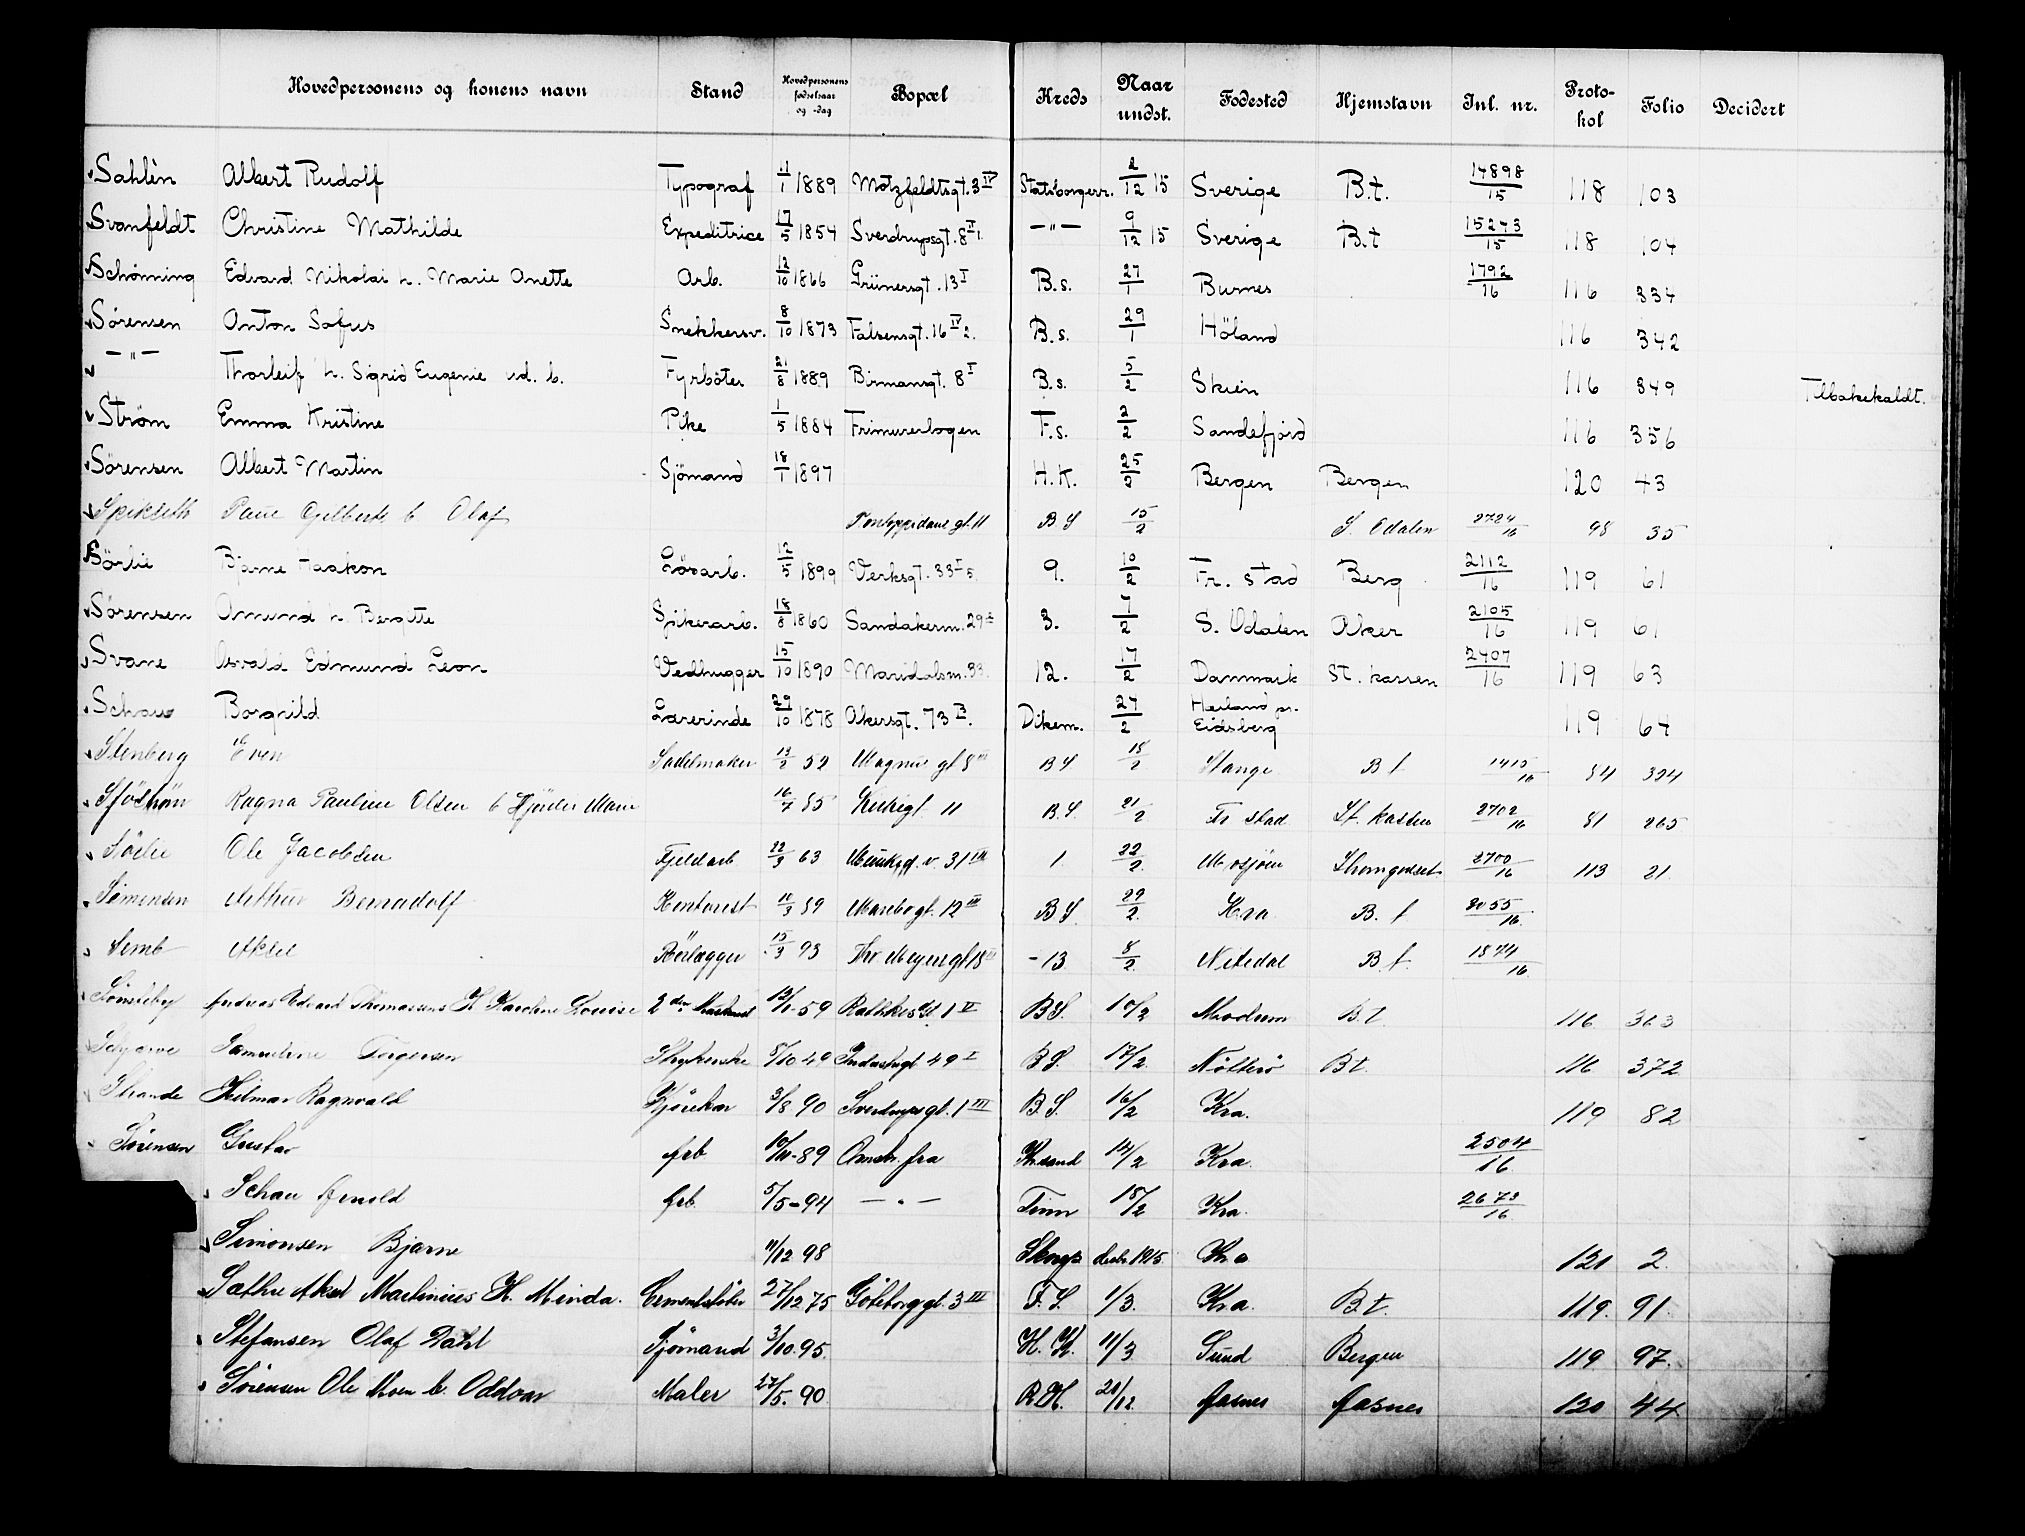 Hovedpersonens og konens navn Stand Hovedpersonens fødselsaar og -dag Bopæl Kreds Naar undst. Fødested Hjemstavn Inl. nr. Proto-kol Folio Decidert
Sahlèn Albert Rudolf Typograf 11/1 1889 Motzfeldtsgt. 3 IV Statsborgerr. 2/12 15 Sverige B.t. 14898/15 118 103
Svanfeldt Christine Mathilde Expeditrice 17/5 1854 Sverdrupsgt. 8 II 1. —"— 9/12 15 Sverige B.t 15243/15 118 104
Schönning Edvard Nikolai h. Marie Anette Arb. 12/10 1866 Grünersgt. 13 I B.s. 27/1 Burnes 1792/16 116 334
Sørensen Anton Sofus Snekkersv. 8/10 1873 Falsensgt. 16 IV 2. B.s. 29/1 Höland 116 342
—"— Thorleif h. Sigrid Eugenie ud. b. Fyrböter 21/8 1889 Birmansgt. 8 I B.s. 5/2 Skien 116 349 Tilbakekaldt.
Strøm Emma Kristine Pike 1/5 1884 Frimurerlogen F.s. 2/2 Sandefjord 116 356
Sørensen Albert Martin Sjömand 18/1 1897 H.K. 25/2 Bergen Bergen 120 43
Olaf gt. 11 B S 15/2 S. Odalen 2724/16 98 35
Sörlie Bjarne Haakon Lösarb. 12/5 1899 Verksgt. 33 I 5. 9. 10/2 Fr. stad Berg 2112/16 119 61
Sørensen Amund h. Bergitte Spikerarb. 18/8 1860 Sandakerm. 29 3. 7/2 S. Odalen Aker 2105/16 119 61
Svane Osvald Edmund Leon Vedhugger 15/10 1890 Maridalsm. 33. 12. 17/2 Danmark St. kassen 2407/16 119 63
Schou Borghild Lærerinde 29/10 1878 Akersgt. 73 B. Dikem. 24/2 Eidsberg 119 64
Stenberg Even Sadelmaker 13/2 52 Magnus gt 8 III B S. 15/2 Stange B t 1415/16 84 324
Ragna Pauline Olsen b Marie 16/7 85 11 B. S. 21/2 Fr stad St. kassen 2702/16 81 265
Sörlie Ole Jacobsen Fjeldarb 22/3 63 31 III 1 22/2 Mosjöen 2700/16 113 21
Simensen Arthur Bernadolf Kontorist 10/3 89 Maribogt. 12 III B S 29/2 Kra B. t 3055/16
Semb Aksel Rörlægger 15/3 93 Thv Meyersgt 15 13 8/2 Nitedal B t. 1874/16
Sönsteby Andreas Edvard Thomassens H Karoline Lovise 2den Maskinist 59 Rathkes Gt 1 IV B S. 10/2 Modum B.t. 116 363
Samueline Torgersen Strykerske 5/10 49 Industrigt 49 I B S. 17/2 Nötterö B t. 116 372
Strande Hilmar Ragnvald Kjörekar 3/8 90 Sverdrupsgt. 1 III B S. 16/2 Kra. 119 82
Sörensen Gustav Arb 10/10-89 Omstr. fra Kr.sand 14/2 Kra. 2504/16
Schau Arnold Arb. 5/5-94 —"— Tinn 18/2 Kra. 2673/16
Simonsen Bjarne 11/12 98 desbr 1915. Kra 121 2.
Sathre Aksel Martinius H. Minda. Cementstøber 27/12 75 Göteborggt. 3 III F. S. 1/3. Kra. B. t. 119. 91.
Stefansen Olaf Dahl Sjömand 3/10. 95. H. K. 11/3 Sund Bergen 119 97.
Sörensen Ole Moen b. Oddvar Maler 27/5. 90 R.H. 21/12 Aasnes Aasnes 120 44